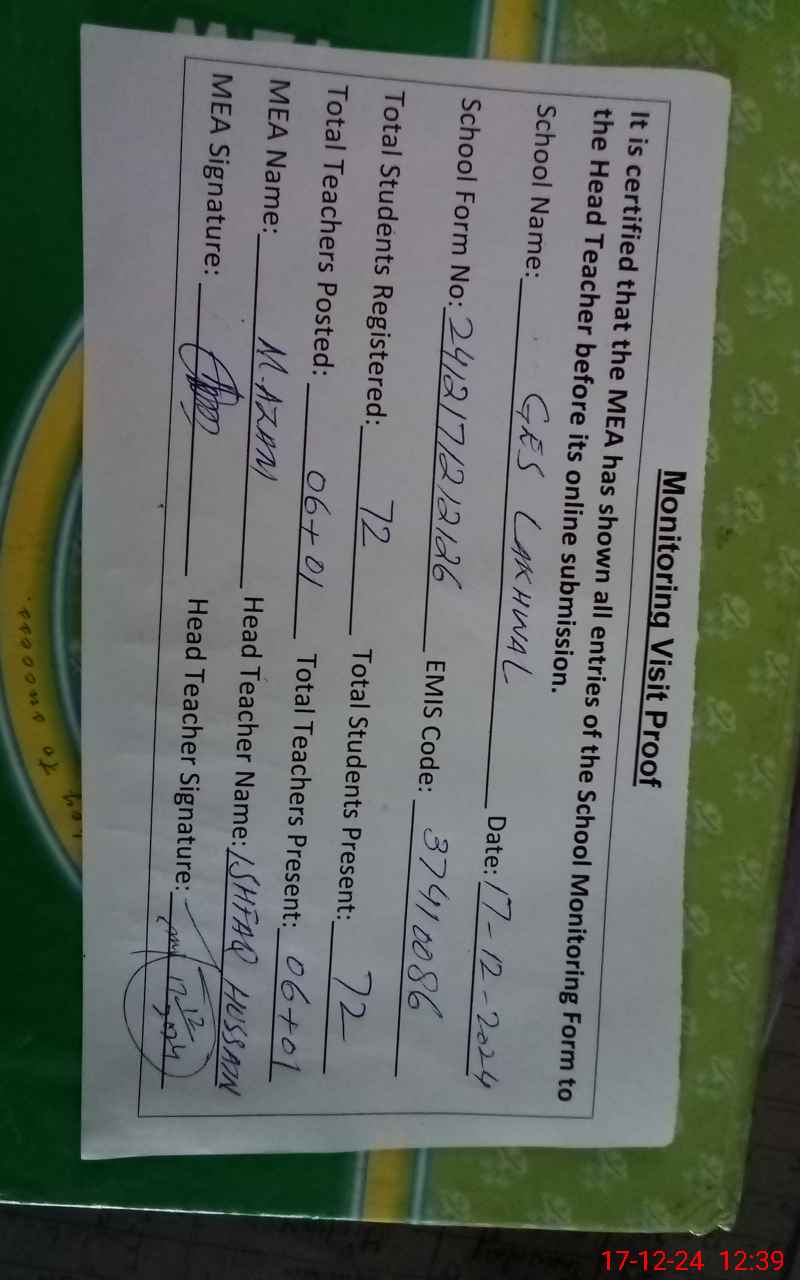 Monitoring Visit Proof
It is certified that the MEA has shown all entries of the School Monitoring Form to
the Head Teacher before its online submission.
School Name: GES LAKHWAL Date: 17-12-2024
School Form No: 241217121226 EMIS Code: 37410086
Total Students Registered: 72 Total Students Present: 72
Total Teachers Posted: 06+01 Total Teachers Present: 06+01
MEA Name: M. AZAM Head Teacher Name: ISHFAQ HUSSAIN
MEA Signature: Head Teacher Signature: 17-12-2024
17-12-24 12:39